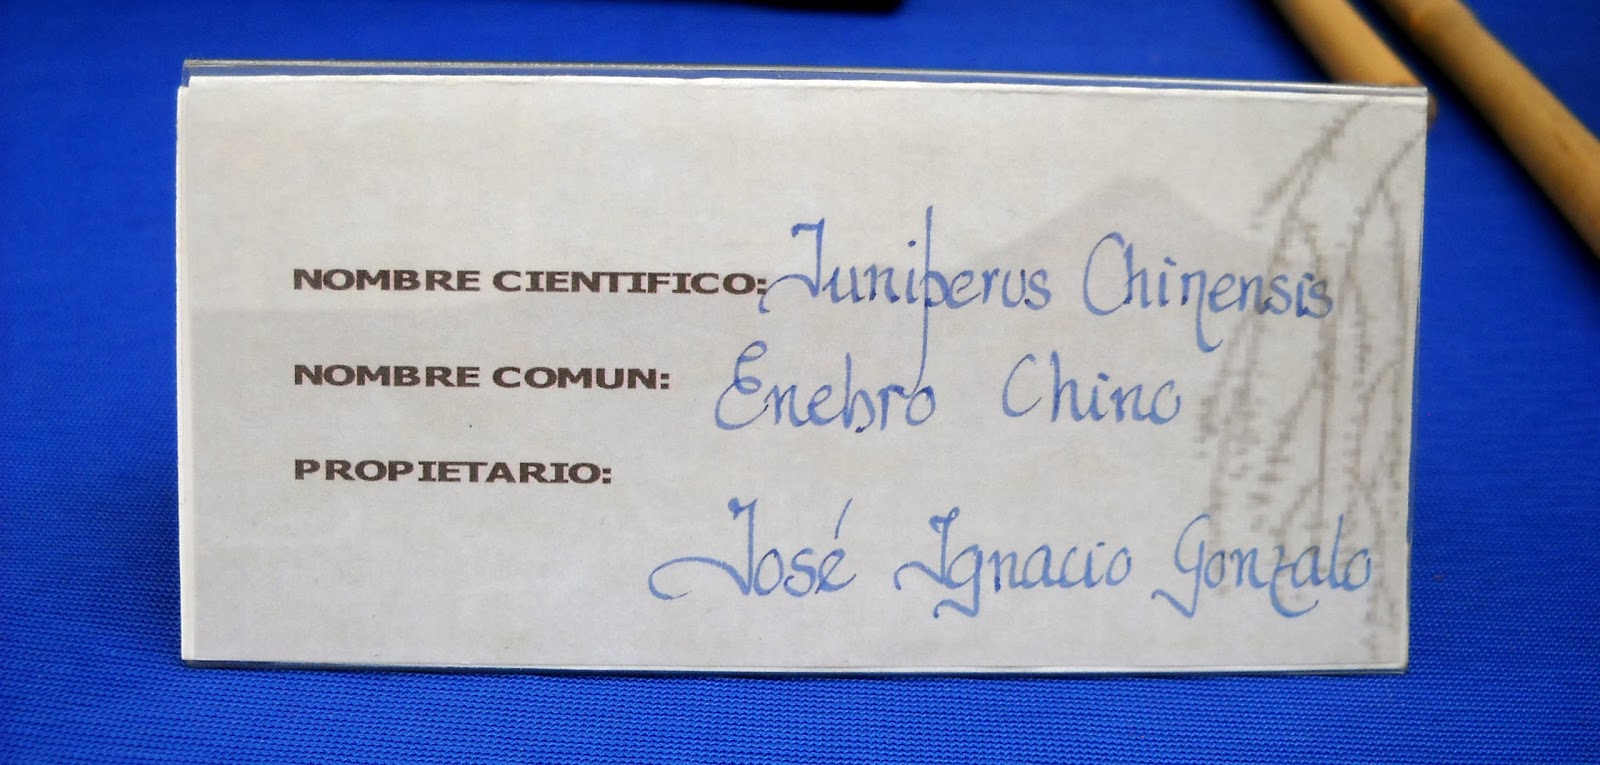 NOMBRE CIENTIFICO: Juniperus Chinensis
NOMBRE COMUN: Enebro Chino
PROPIETARIO:
José Ignacio Gonzalo